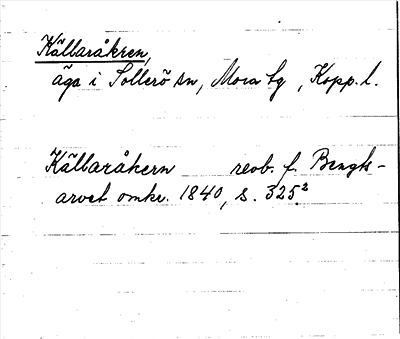 Källaråkren,
äga i Sollerö sn, Mora tg, Kopp. l.
Källaråkern reob. f. Bengts-
arvet omkr. 1840, s. 325.²